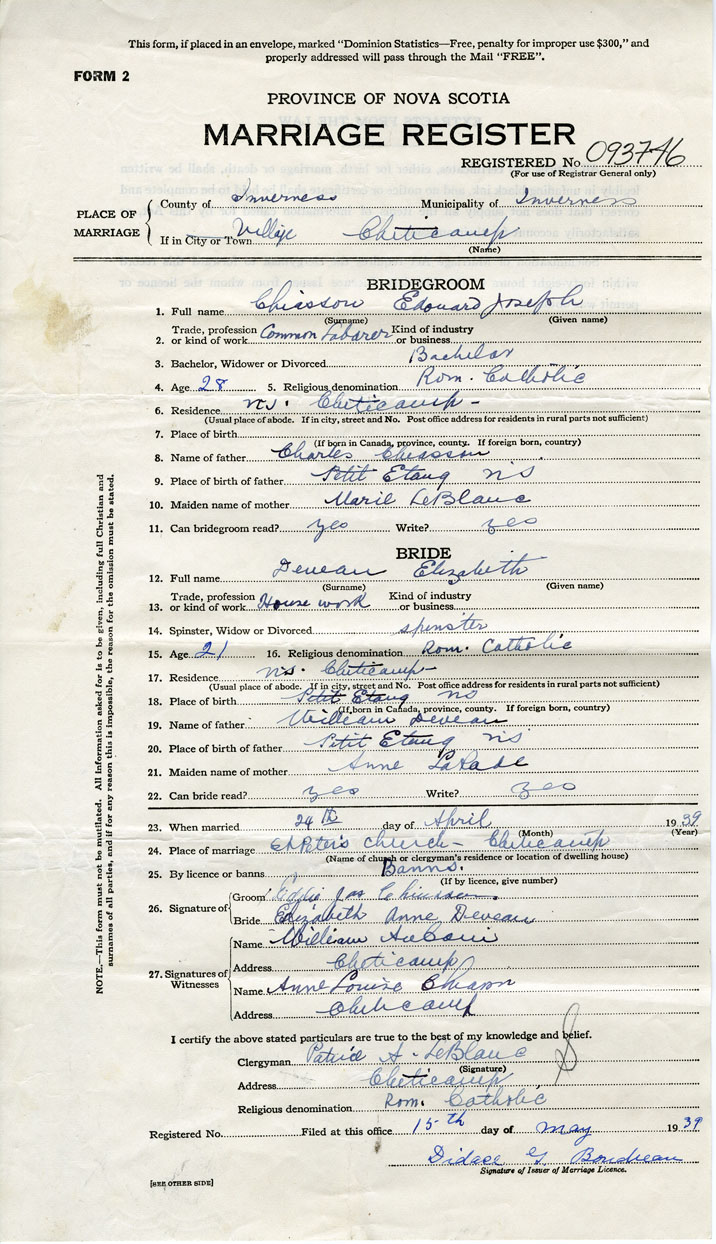 This form, if placed in an envelope, marked "Dominion Statistics—Free, penalty for improper use $300," and
properly addressed will pass through the Mail "FREE".
FORM 2
PROVINCE OF NOVA SCOTIA
MARRIAGE REGISTER
REGISTERED No. 093746
(For use of Registrar General only)
PLACE OF MARRIAGE
County of Inverness Municipality of Inverness
If in City or Town Village Cheticamp
(Name)
BRIDEGROOM
1. Full name Chiasson Edouard Joseph
(Surname) (Given name)
2. Trade, profession or kind of work Common Laborer Kind of industry or business
3. Bachelor, Widower or Divorced Bachelor
4. Age 28 5. Religious denomination Rom. Catholic
6. Residence N.S. Cheticamp -
(Usual place of abode. If in city, street and No. Post office address for residents in rural parts not sufficient)
7. Place of birth
(If born in Canada, province, county. If foreign born, country)
8. Name of father Charles Chiasson
9. Place of birth of father Petit Etang NS
10. Maiden name of mother Marie LeBlanc
11. Can bridegroom read? yes Write? yes
BRIDE
12. Full name Deveau Elizabeth
(Surname) (Given name)
13. Trade, profession or kind of work House work Kind of industry or business
14. Spinster, Widow or Divorced spinster
15. Age 21 16. Religious denomination Rom. Catholic
17. Residence N.S. Cheticamp
(Usual place of abode. If in city, street and No. Post office address for residents in rural parts not sufficient)
18. Place of birth Petit Etang NS
(If born in Canada, province, county. If foreign born, country)
19. Name of father William Deveau
20. Place of birth of father Petit Etang NS
21. Maiden name of mother Anne LaRade
22. Can bride read? yes Write? yes
23. When married 24th day of April 1939
(Month) (Year)
24. Place of marriage St Peters Church - Cheticamp
(Name of church or clergyman's residence or location of dwelling house)
25. By licence or banns Banns.
(If by licence, give number)
26. Signature of
Groom Eddie Jos Chiasson
Bride Elizabeth Anne Deveau
27. Signatures of Witnesses
Name William
Address Cheticamp
Name Anne Louise
Address Cheticamp
I certify the above stated particulars are true to the best of my knowledge and belief.
Clergyman Patrick A. LeBlanc
(Signature)
Address Cheticamp
Religious denomination Rom. Catholic
Registered No. Filed at this office 15th day of May 1939
Didace G Boudreau
Signature of Issuer of Marriage Licence.
[SEE OTHER SIDE]
NOTE.—This form must not be mutilated. All information asked for is to be given, including full Christian and
surnames of all parties, and if for any reason this is impossible, the reason for the omission must be stated.